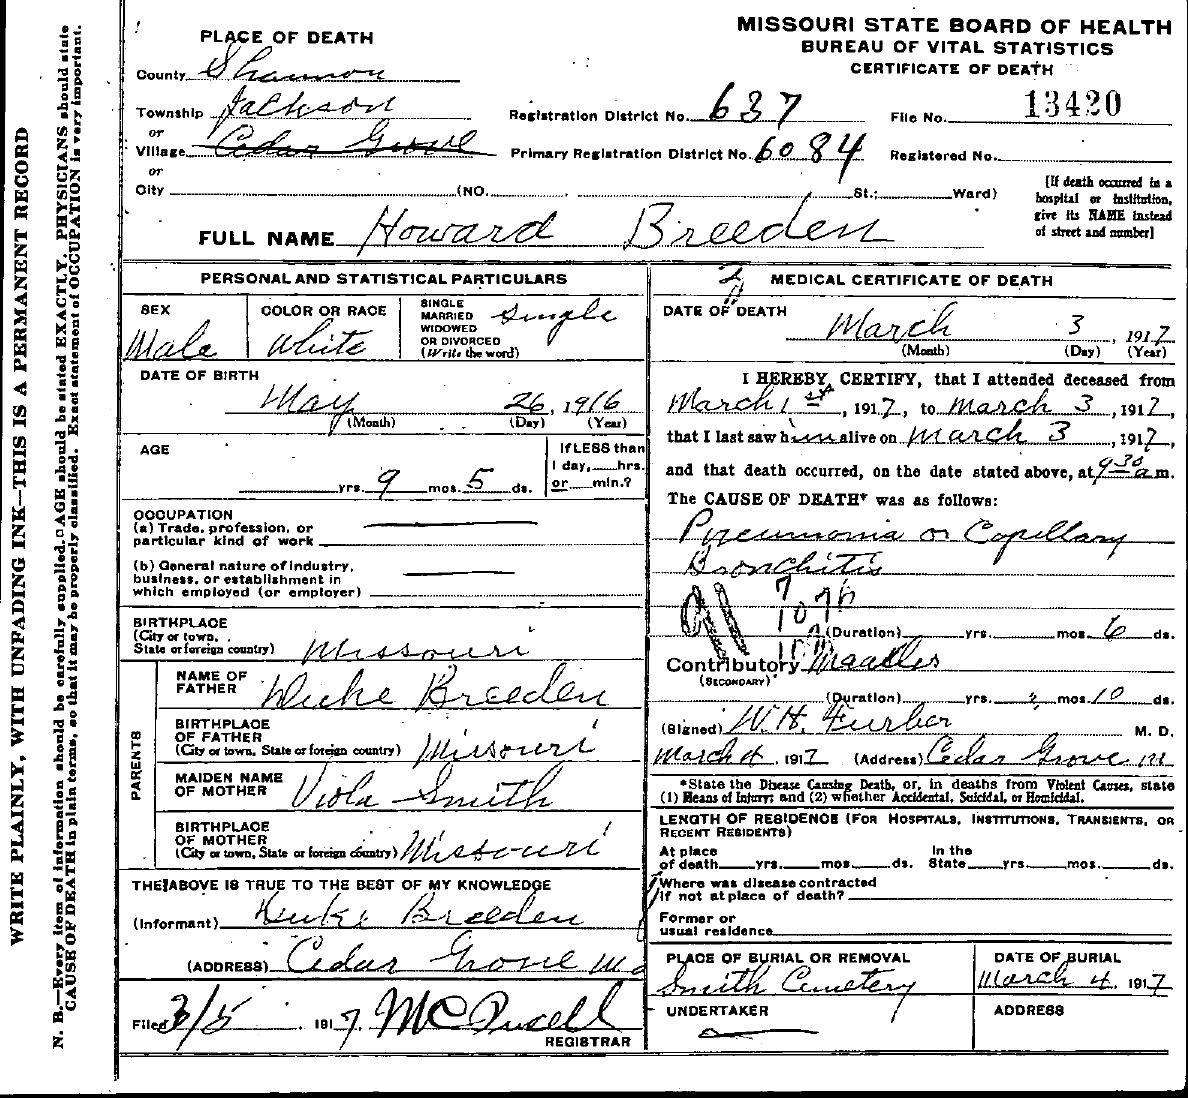 MISSOURI STATE BOARD OF HEALTH
BUREAU OF VITAL STATISTICS
CERTIFICATE OF DEATH
PLACE OF DEATH
County Shannon
Township Jackson
or
Village Cedar Grove
or
City (NO. St.; Ward)
Registration District No. 637
File No. 13420
Primary Registration District No. 6084
Registered No.
[If death occurred in a
hospital or institution,
give its NAME instead
of street and number]
FULL NAME Howard Breeden
PERSONAL AND STATISTICAL PARTICULARS
SEX
Male
COLOR OR RACE
White
SINGLE
MARRIED
WIDOWED
OR DIVORCED
(Write the word)
Single
DATE OF BIRTH
May 26, 1916
(Month) (Day) (Year)
AGE
yrs. 9 mos. 5 ds.
If LESS than
1 day, hrs.
or min.?
OCCUPATION
(a) Trade, profession, or
particular kind of work
(b) General nature of industry,
business, or establishment in
which employed (or employer)
BIRTHPLACE
(City or town,
State or foreign country) Missouri
PARENTS
NAME OF
FATHER Duke Breeden
BIRTHPLACE
OF FATHER
(City or town, State or foreign country) Missouri
MAIDEN NAME
OF MOTHER Viola Smith
BIRTHPLACE
OF MOTHER
(City or town, State or foreign country) Missouri
THE ABOVE IS TRUE TO THE BEST OF MY KNOWLEDGE
(Informant) Duke Breeden
(ADDRESS) Cedar Grove Mo
Filed 3/5 1917.
REGISTRAR
MEDICAL CERTIFICATE OF DEATH
DATE OF DEATH
March 3, 1917
(Month) (Day) (Year)
I HEREBY CERTIFY, that I attended deceased from
March 1st, 1917, to March 3, 1917,
that I last saw him alive on March 3, 1917,
and that death occurred, on the date stated above, at 9 30 a m.
The CAUSE OF DEATH* was as follows:
Pneumonia or Capillary
Bronchitis
91
(Duration) yrs. mos. 6 ds.
Contributory Measles
(SECONDARY)
(Duration) yrs. mos. 10 ds.
(Signed) W. H. Furber M. D.
March 4, 1917 (Address) Cedar Grove M
*State the Disease Causing Death, or, in deaths from Violent Causes, state
(1) Means of Injury; and (2) whether Accidental, Suicidal, or Homicidal.
LENGTH OF RESIDENCE (FOR HOSPITALS, INSTITUTIONS, TRANSIENTS, OR
RECENT RESIDENTS)
At place In the
of death yrs. mos. ds. State yrs. mos. ds.
Where was disease contracted
If not at place of death?
Former or
usual residence
PLACE OF BURIAL OR REMOVAL
Smith Cemetery
DATE OF BURIAL
March 4, 1917
UNDERTAKER
ADDRESS
WRITE PLAINLY, WITH UNFADING INK—THIS IS A PERMANENT RECORD
N. B.—Every item of information should be carefully supplied. AGE should be stated EXACTLY. PHYSICIANS should state
CAUSE OF DEATH in plain terms, so that it may be properly classified. Exact statement of OCCUPATION is very important.